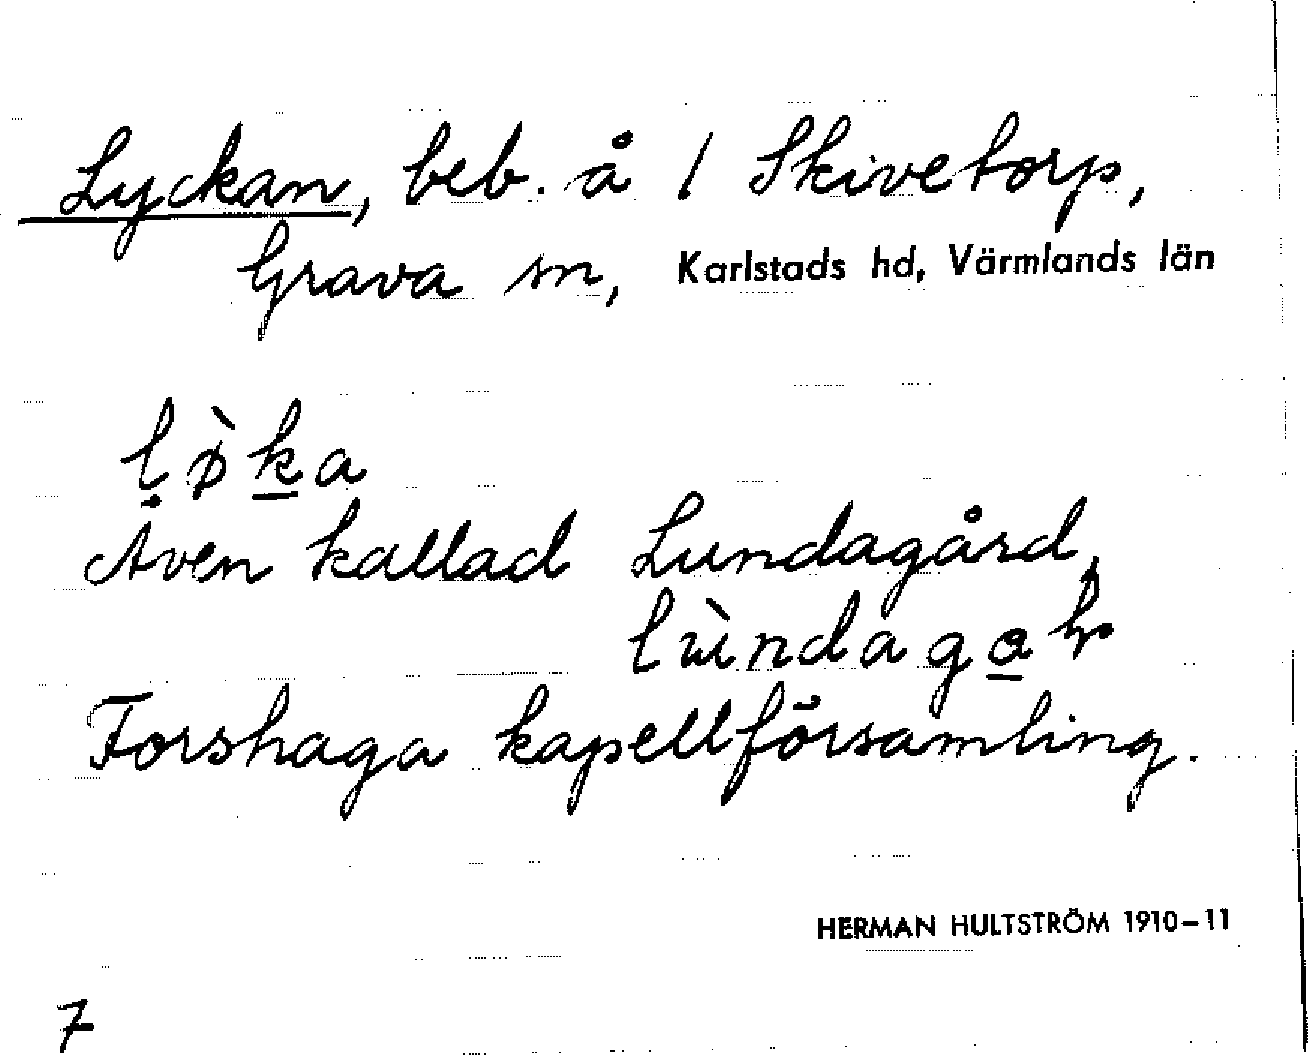 Lyckan, beb. å 1 Skivetorp,
Grava sn, Karlstads hd, Värmlands län
lø̀ka
Även kallad Lundagård,
Forshaga kapellförsamling.
HERMAN HULTSTRÖM 1910–11
7